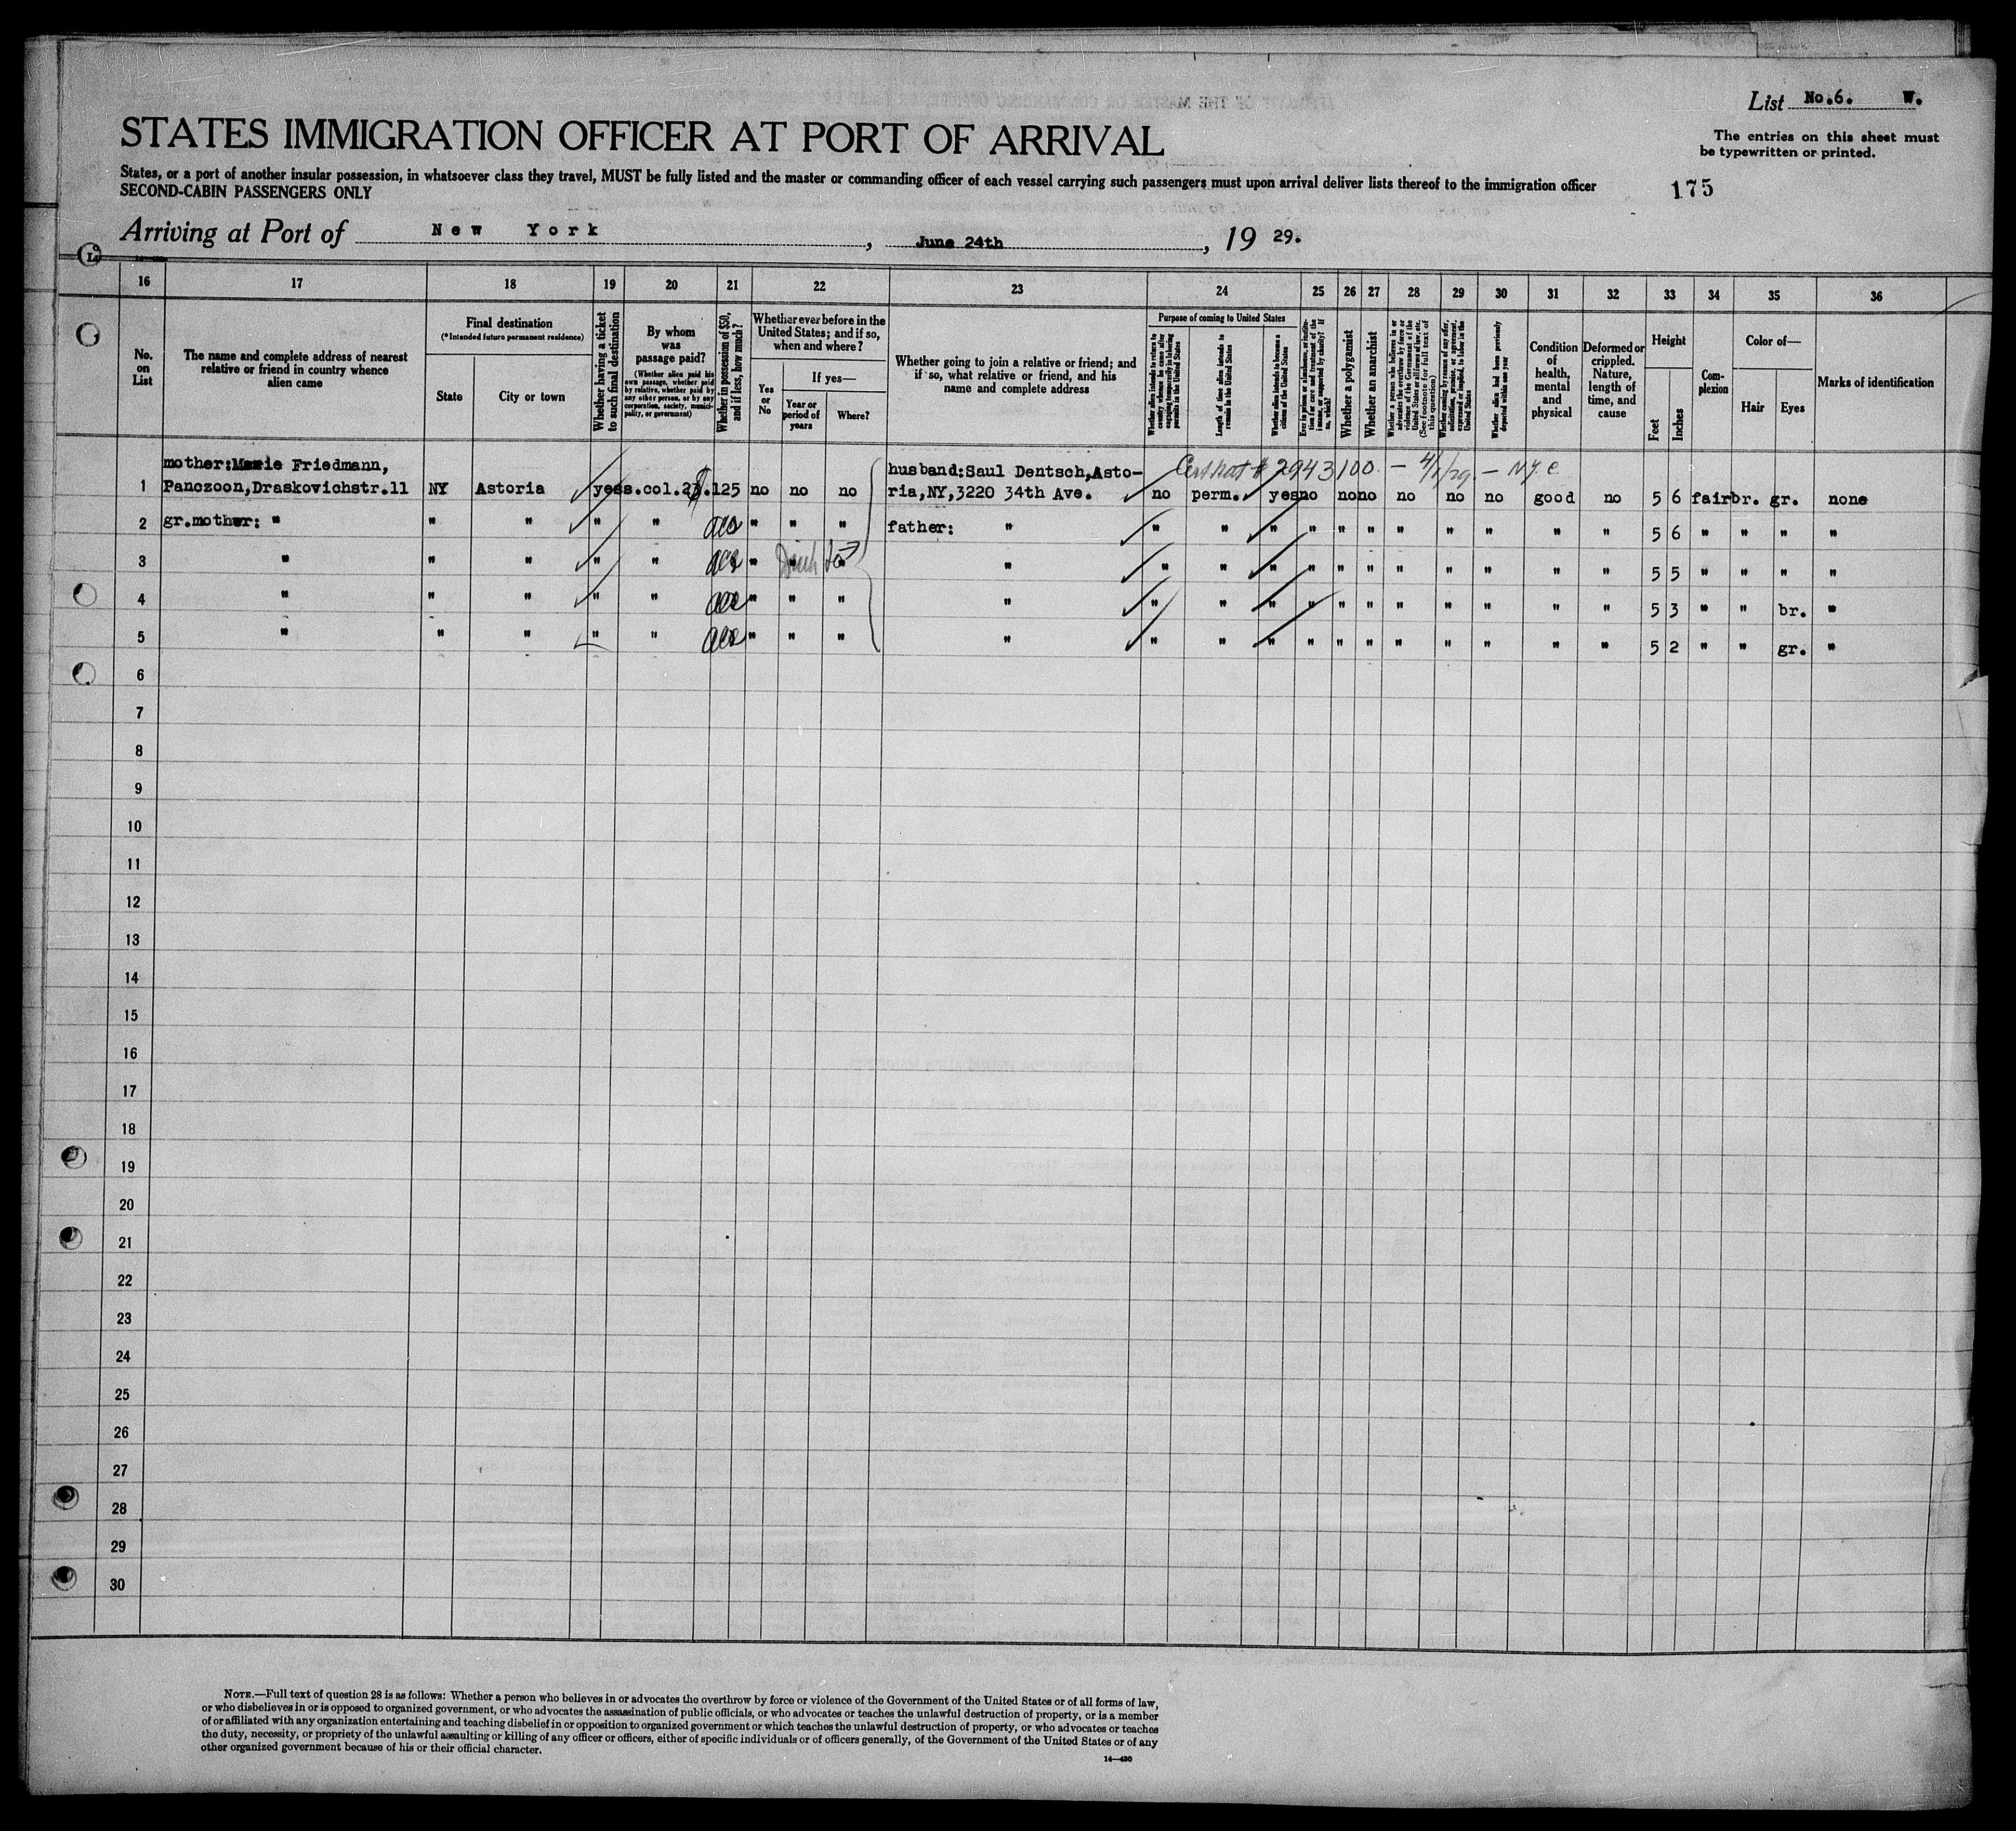 List No.6. W.
STATES IMMIGRATION OFFICER AT PORT OF ARRIVAL
The entries on this sheet must
be typewritten or printed.
States, or a port of another insular possession, in whatsoever class they travel, MUST be fully listed and the master or commanding officer of each vessel carrying such passengers must upon arrival deliver lists thereof to the immigration officer
SECOND-CABIN PASSENGERS ONLY
175
Arriving at Port of New York, June 24th, 19 29.
16 17 18 19 20 21 22 23 24 25 26 27 28 29 30 31 32 33 34 35 36
No. on List
The name and complete address of nearest relative or friend in country whence alien came
Final destination
(*Intended future permanent residence)
State
City or town
Whether having a ticket to such final destination
By whom was passage paid?
(Whether alien paid his own passage, whether paid by relative, whether paid by any other person, or by any corporation, society, municipality, or government)
Whether in possession of $50, and if less, how much?
Whether ever before in the United States; and if so, when and where?
Yes or No
If yes—
Year or period of years
Where?
Whether going to join a relative or friend; and if so, what relative or friend, and his name and complete address
Purpose of coming to United States
Whether alien intends to return to country whence he came after engaging temporarily in laboring pursuits in the United States
Length of time alien intends to remain in the United States
Whether alien intends to become a citizen of the United States
Ever in prison or almshouse, or institution for care and treatment of the insane, or supported by charity? If so, which?
Whether a polygamist
Whether an anarchist
Whether a person who believes in or advocates the overthrow by force or violence of the Government of the United States or all forms of law, etc. (See footnote for full text of this question)
Whether coming by reason of any offer, solicitation, promise, or agreement, expressed or implied, to labor in the United States
Whether alien had been previously deported within one year
Condition of health, mental and physical
Deformed or crippled. Nature, length of time, and cause
Height
Feet
Inches
Complexion
Color of—
Hair
Eyes
Marks of identification
2943100 - 4/1/29 - N.Y.C
mother:Marie Friedmann, husband:Saul Dentsch,Asto-
1 Panczoon,Draskovichstr.11 NY Astoria yes s.col.23. 125 no no no ria,NY,3220 34th Ave. no perm. yes no no no no no no good no 5 6 fair br. gr. none
2 gr.mother: " " " " " " " " father: " " " " " " " " " " " " 5 6 " " " "
3 " " " " " " " " " " " " " " " " " " " " 5 5 " " " "
4 " " " " " " " " " " " " " " " " " " " " 5 3 " " br. "
5 " " " " " " " " " " " " " " " " " " " " 5 2 " " gr. "
6
7
8
9
10
11
12
13
14
15
16
17
18
19
20
21
22
23
24
25
26
27
28
29
30
NOTE.—Full text of question 28 is as follows: Whether a person who believes in or advocates the overthrow by force or violence of the Government of the United States or of all forms of law,
or who disbelieves in or is opposed to organized government, or who advocates the assassination of public officials, or who advocates or teaches the unlawful destruction of property, or is a member
of or affiliated with any organization entertaining and teaching disbelief in or opposition to organized government or which teaches the unlawful destruction of property, or who advocates or teaches
the duty, necessity, or propriety of the unlawful assaulting or killing of any officer or officers, either of specific individuals or of officers generally, of the Government of the United States or of any
other organized government because of his or their official character.
14—430